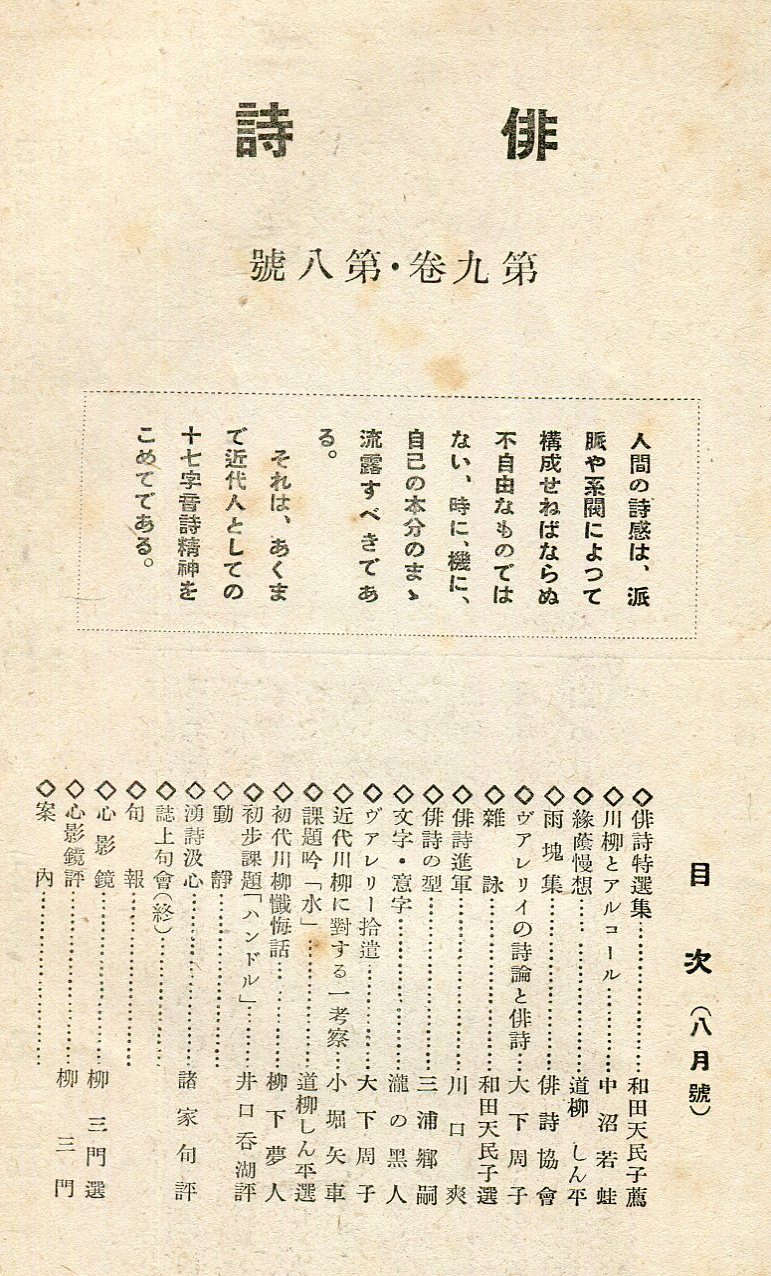 俳詩
第九卷・第八號
人間の詩感は、派
脈や系閥によつて
構成せねばならぬ
不自由なものでは
ない、時に、機に、
自己の本分のまゝ
流露すべきであ
る。
それは、あくま
で近代人としての
十七字音詩精神を
こめてである。
目次（八月號）
◇俳詩特選集……………和田天民子薦
◇川柳とアルコール……………中沼若蛙
◇緣蔭慢想……………道柳しん平
◇雨塊集……………俳詩協會
◇ヴァレリイの詩論と俳詩……大下周子
◇雜詠……………和田天民子選
◇俳詩進軍……………川口爽
◇俳詩の型……………三浦鄕嗣
◇文字・意字……………瀧の黑人
◇ヴァレリー拾遺……………大下周子
◇近代川柳に對する一考察……小堀矢車
◇課題吟「水」……………道柳しん平選
◇初代川柳懺悔話……………柳下夢人
◇初步課題「ハンドル」………井口呑湖評
◇動靜……………
◇湧詩汲心……………諸家句評
◇誌上句會（終）……………
◇句報……………
◇心影鏡……………柳三門選
◇心影鏡評……………柳三門
◇案內……………